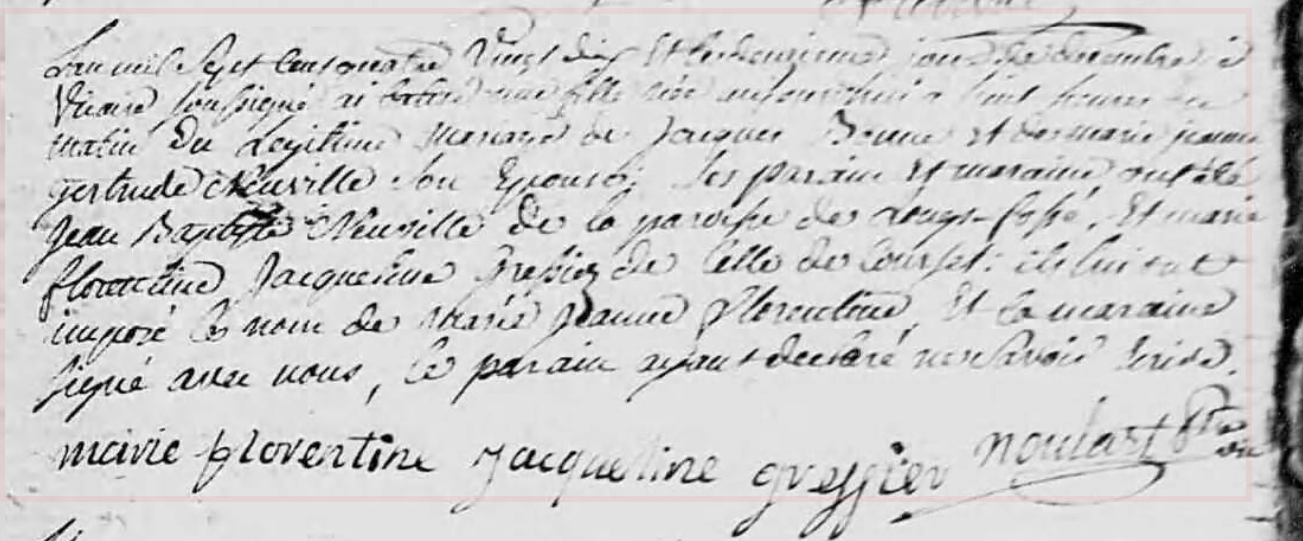 L'an mil Sept Cens quatre Vingt dix Et le deuxieme jour de decembre
Vicaire soussigné ai batisé une fille née aujourd'hui a huit heures du
matin Du Legitime Mariage de Jacques Bonne et de marie jeanne
gertrude Neuville Son Epouse; Ses parain Et maraine ont été
Jean Baptiste Neuville De la paroisse de Longfossé, Et marie
florentine Jacqueline Gressier de Celle de Courset: ils lui ont
imposé le nom de Marie Jeanne florentine, Et la maraine
signé avec nous, le parain ayant declaré ne Savoir Ecrire.
marie florentine Jacqueline gressier noulart